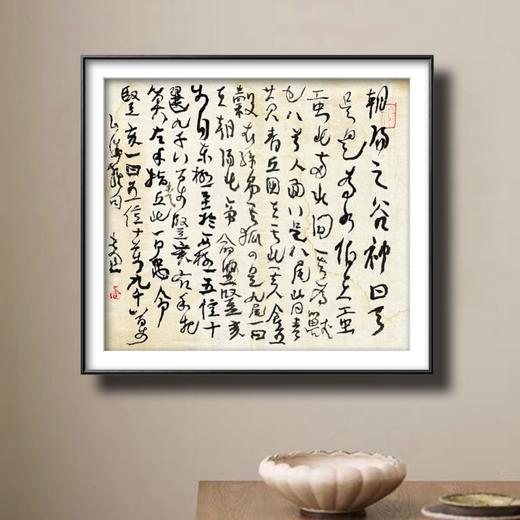 朝陽之谷神曰天
吳是為水伯在䖝
䖝北兩水間其為獸
也八首人面八足八尾皆青
黃青丘國在其北其人食五
穀衣絲帛其狐四足九尾一曰
在朝陽北帝命豎豎亥
步自東極至於西極五億十
選九千八百步豎亥右手把
算左手指青丘北一曰禹令
豎亥一曰五億十萬九千八百步
山海經句